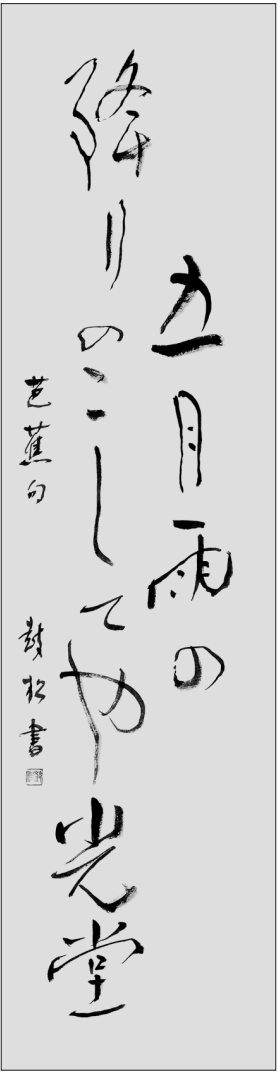 五月雨の
降りのこしてや光堂
芭蕉句
書